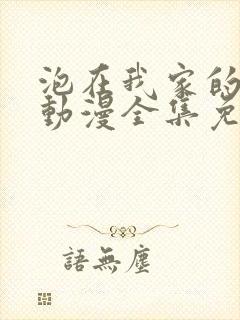 泡在我家的
動漫全集免
語無塵